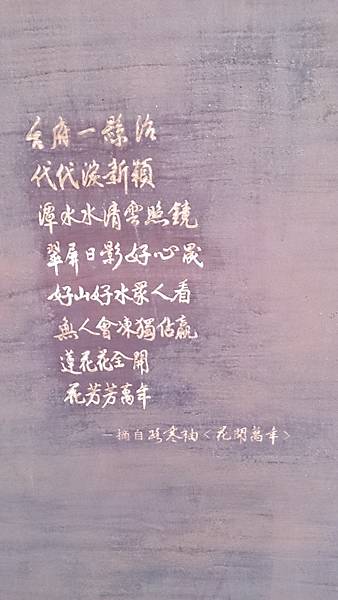 台府一縣治
代代淡新穎
潭水水清雲照鏡
翠屏日影好心晟
好山好水眾人看
無人會凍獨佔贏
蓮花花全開
花芳芳萬年
—摘自路寒袖<花開萬年>